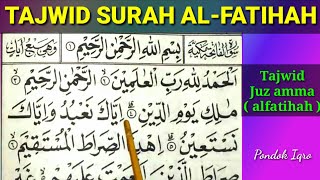 TAJWID SURAH AL-FATIHAH
سورة الفاتحة مكية
بسم الله الرحمن الرحيم
وهي سبع آيات
الحمد لله رب العلمين ١ الرحمن الرحيم ٢
ملك يوم الدين ٣ إياك نعبد وإياك
نستعين ٤ اهدنا الصراط المستقيم ٥
صراط الذين أنعمت عليهم غير
Tajwid
Juz amma
( alfatihah )
Pondok Iqro